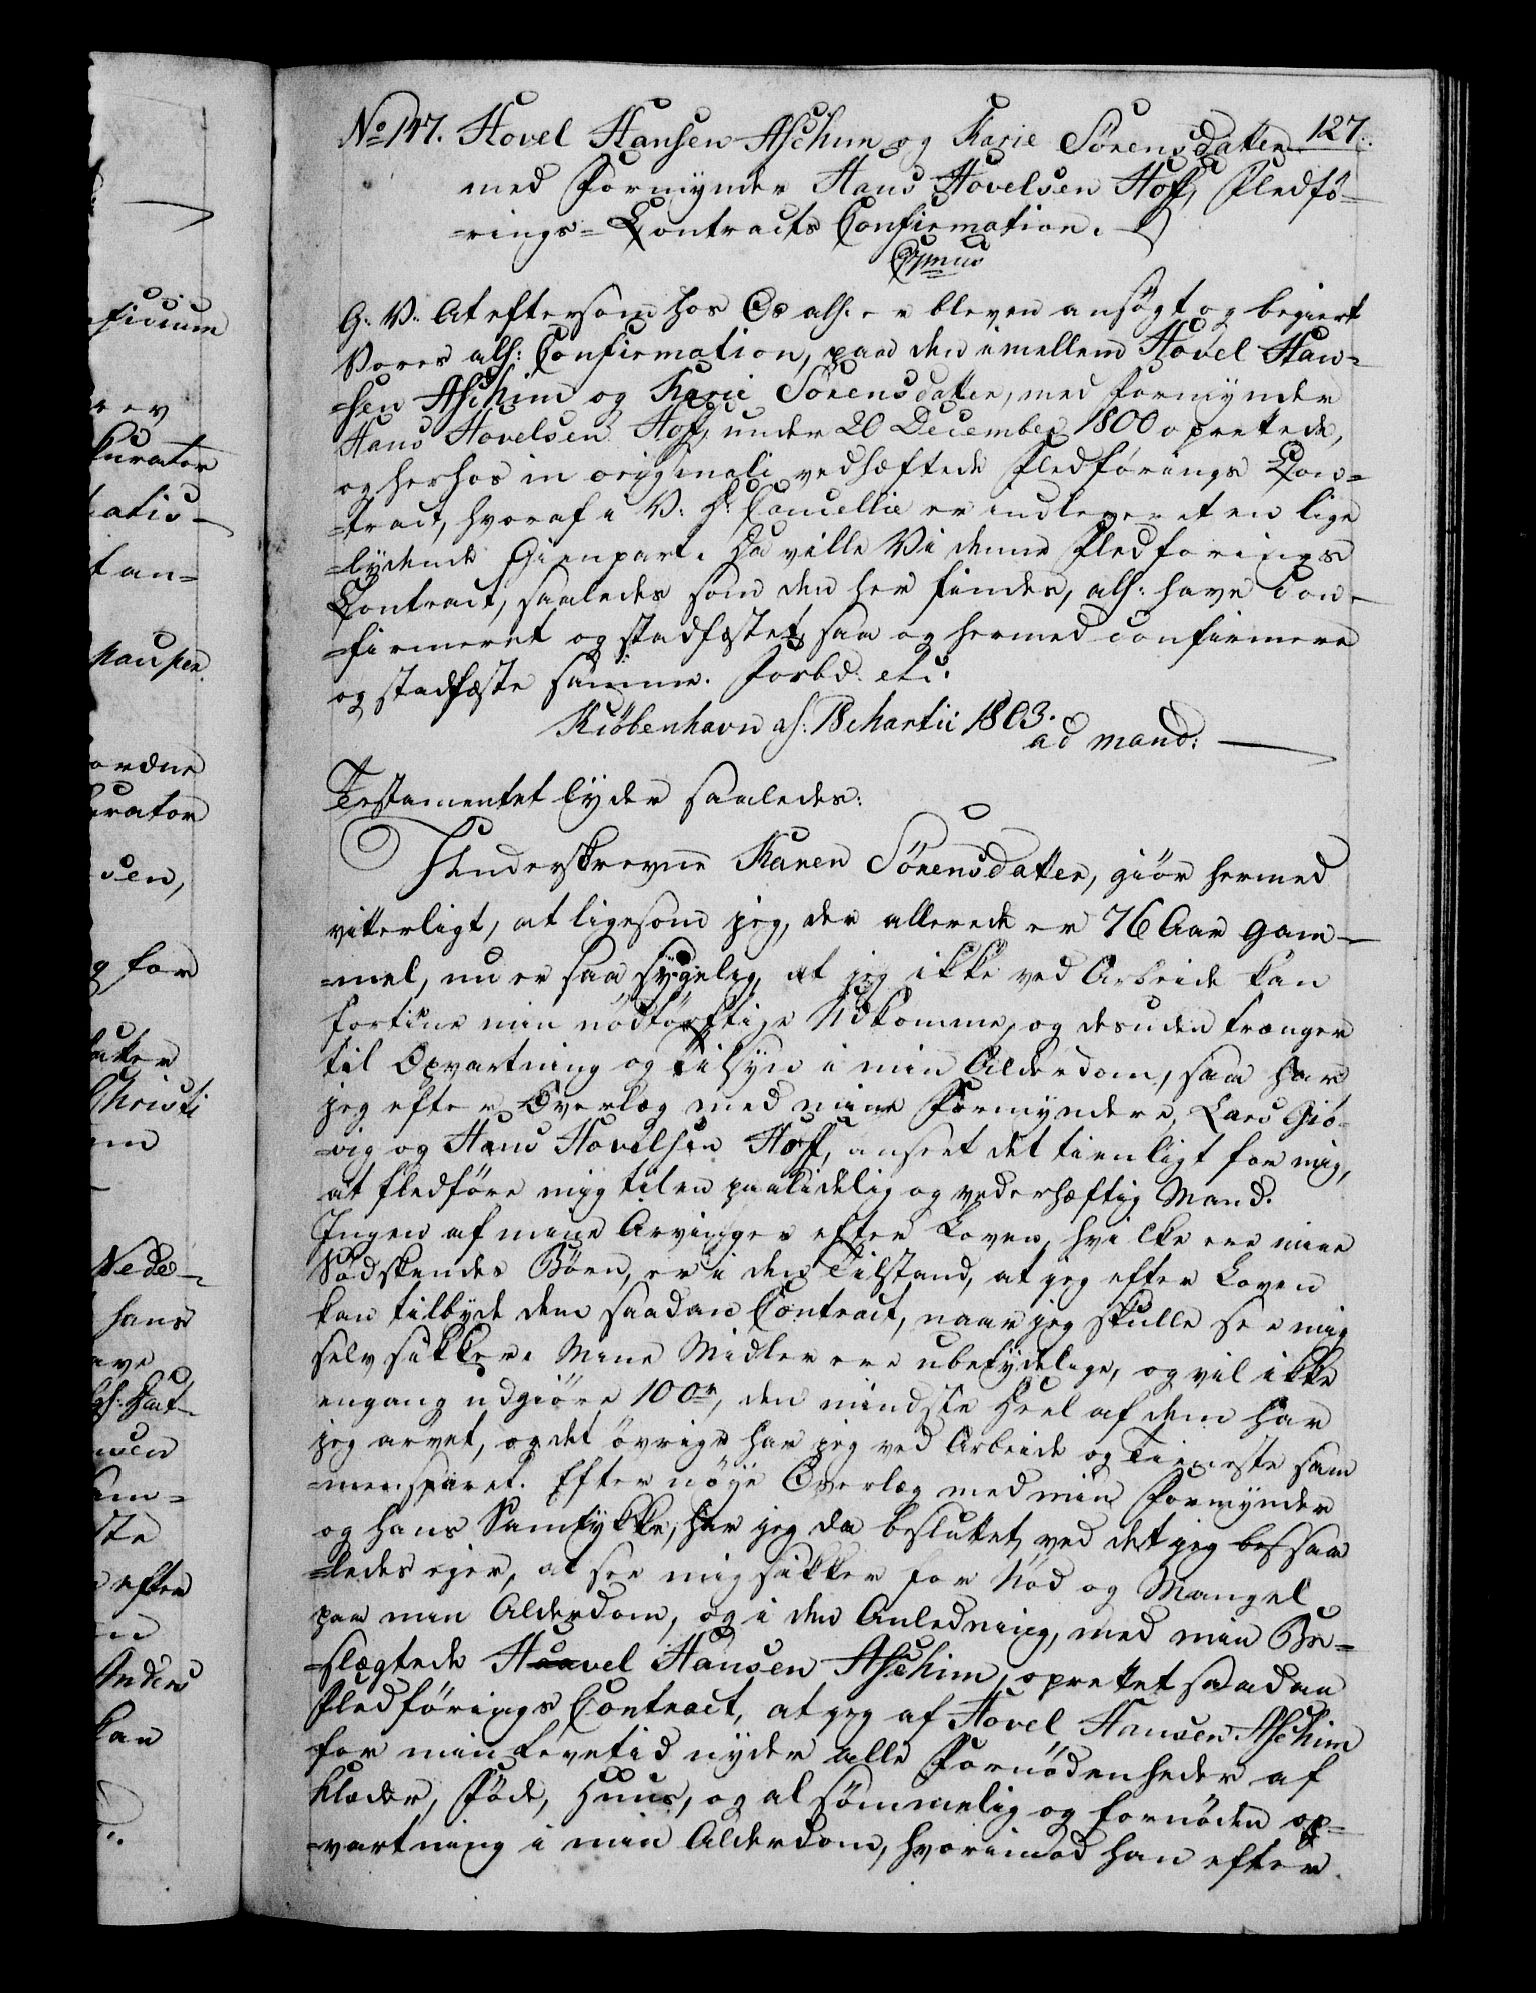 127.
No 147. Hovel Hansen Aschim og Karie Sörensdatter
med Formynder Hans Hovelsen Hoff, Fledfö-
-rings-Contracts Confirmation.
G: V: At eftersom hos Os alh: er bleven ansögt og begiert
Vores alh: Confirmation, paa den imellem Hovel Han-
-sen Aschim og Karie Sörensdatter, med Formynder
Hans Hovelsen Hoff, under 20 December 1800 oprettede,
og herhos in originali vedhæftede Fledförings Con-
-tract, hvoraf i V: D: Cancellie er indleveret en lige
-lydende Gienpart. Da ville Vi denne Fledförings
Contract, saaledes som den her findes, alh: have con-
-firmeret og stadfæstet, saa og hermed confirmere
og stadfæste samme. Forbd: etc:
Kiöbenhavn d: 18 Martii 1803.
ad mand:
Testamentet lyder saaledes:
Underskrevne Karen Sörensdatter, giör hermed
vitterligt, at ligesom jeg, der allerede er 76 Aar gam-
-mel, nu er saa sygelig, at jeg ikke ved Arbeide kan
fortiene min nödtörftige Udkomme, og desuden trænger
til Opvartning og Tilsyn i min Alderdom, saa har
jeg efter Overlæg med mine Formyndere, Lars Giö-
-vig og Hans Hovelsen Hoff, anseet det tienligt for mig,
at fledföre mig til en paalidelig og vederhæftig Mand.
Ingen af mine Arvinger efter Loven, hvilke ere mine
Södskendes Börn, er i den Tilstand, at jeg efter Loven
kan tilbyde dem saadan Contract, naar jeg skulle see mig
selv sikker. Mine Midler ere ubetydelige, og vil ikke
engang udgiöre 100 r, den mindste Deel af dem har
jeg arvet, og det övrige har jeg ved Arbeide og Tieneste sam
-mensparet. Efter nöye Overlæg med min Formynder
og hans Samtykke, har jeg da besluttet, ved det jeg saa
-ledes ejer, at see mig sikker for Nöd og Mangel
paa min Alderdom, og i den Anledning, med min Be-
-slægtede Hovel Hansen Aschim, oprettet saadan
Fledförings Contract, at jeg af Hovel Hansen Aschim
for min Levetid nyder alle Fornödenheder af
Klæder, Föde, Huus, og al sömmelig og fornöden op-
-vartning i min Alderdom, hvorimod han efter